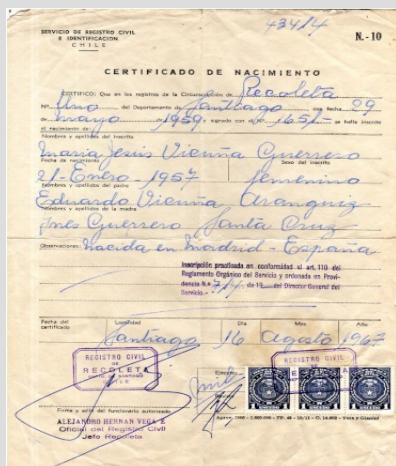 43414
SERVICIO DE REGISTRO CIVIL
E IDENTIFICACION
CHILE
N.- 10
CERTIFICADO DE NACIMIENTO
CERTIFICO: Que en los registros de la Circunscripción de Recoleta
Nº Uno del Departamento de Santiago con fecha 29
de mayo 1959, signado con el Nº 1651- se halla inscrito
el nacimiento de:
Nombres y apellidos del inscrito
Maria Jesús Vicuña Guerrero
Fecha de nacimiento Sexo del inscrito
21-Enero-1957 femenino
Nombres y apellidos del padre
Eduardo Vicuña Aranguiz
Nombres y apellidos de la madre
Ines Guerrero Santa Cruz
Observaciones: nacida en Madrid - España
Inscripción practicada en conformidad al art. 110 del
Reglamento Orgánico del Servicio y ordenada en Provi-
dencia N.o de 19 del Director General del
Servicio.-
Fecha del certificado Localidad Día Mes Año
Santiago 16 Agosto 1967
REGISTRO CIVIL
DE
RECOLETA
CHILE
REGISTRO CIVIL
Firma y sello del funcionario autorizado
ALEJANDRO HERNAN VEGA E
Oficial del Registro Civil
Jefe Recoleta